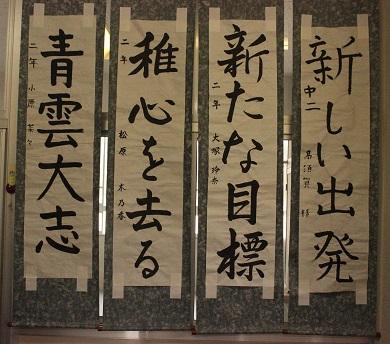 新しい出発
中二
新たな目標
二年 大塚 玲奈
稚心を去る
二年 松原 木乃香
青雲大志
二年 小原